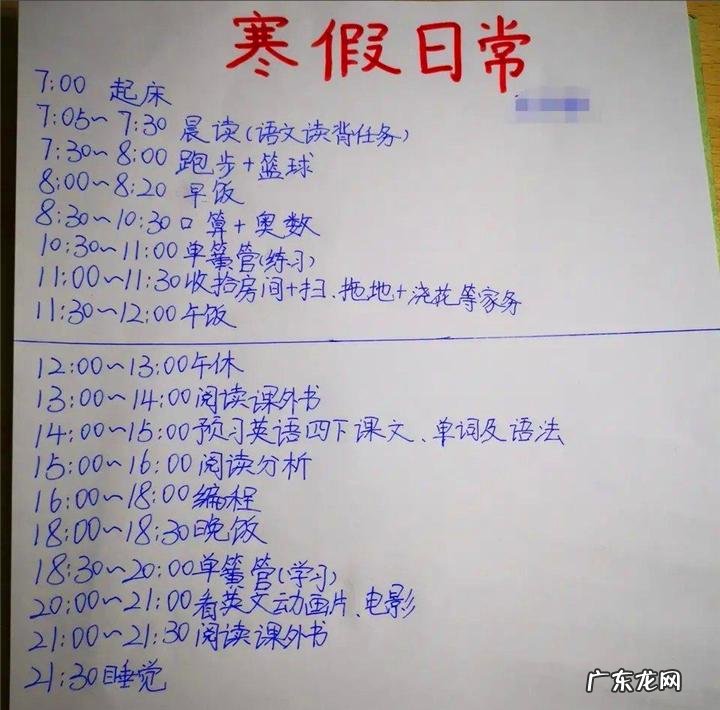 寒假日常
7:00 起床
7:05~7:30 晨读(语文读背任务)
7:30~8:00 跑步+篮球
8:00~8:20 早饭
8:30~10:30 口算+奥数
10:30~11:00 单簧管(练习)
11:00~11:30 收拾房间+扫、拖地+浇花等家务
11:30~12:00 午饭
12:00~13:00 午休
13:00~14:00 阅读课外书
14:00~15:00 预习英语四下课文、单词及语法
15:00~16:00 阅读分析
16:00~18:00 编程
18:00~18:30 晚饭
18:30~20:00 单簧管(学习)
20:00~21:00 看英文动画片、电影
21:00~21:30 阅读课外书
21:30 睡觉
广东龙网